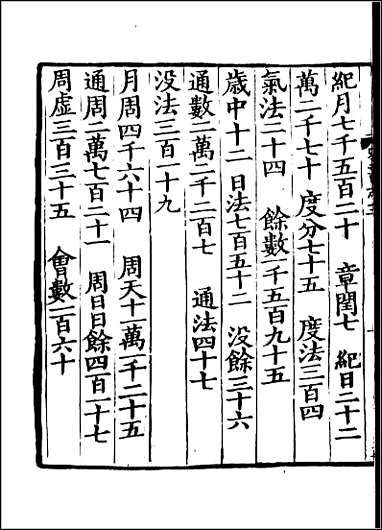 紀月七千五百二十　章閏七　紀日二十二
萬二千七十　度分七十五　度法三百四
氣法二十四　餘數一千五百九十五
歲中十二　日法七百五十二　沒餘三十六
通數二萬二千二百七　通法四十七
沒法三百一十九
月周四千六十四　周天十一萬一千二十五
通周二萬七百二十一　周日日餘四百一十七
周虛三百三十五　會數一百六十